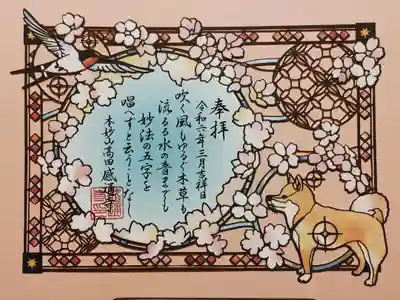 奉拝
令和六年三月吉祥日
吹く風もゆるぐ木草も
流るる水の音までも
妙法の五字を
唱へずと云うことなし
本妙山高田感通寺